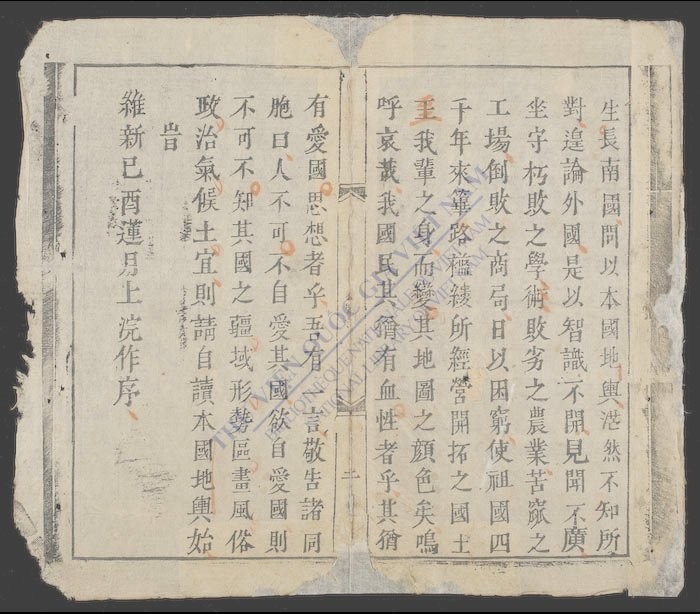 生長南國問以本國地輿茫然不知所
對遑論外國是以智識不開見聞不廣
坐守朽敗之學術敗劣之農業苦窳之
工場倒敗之商局日以困窮使祖國四
千年來篳路襤綾所經營開拓之國土
至我輩之身而變其地圖之顏色矣嗚
呼哀哉我國民其猶有血性者乎其猶
二
有愛國思想者乎吾有一言敬告諸同
胞曰人不可不自愛其國欲自愛國則
不可不知其國之疆域形勢區畫風俗
政治氣候土宜則請自讀本國地輿始
旹
維新己酉蓮月上浣作序
THƯ VIỆN QUỐC GIA VIỆT NAM
BIBLIOTHÈQUE NATIONALE DU VIETNAM
NATIONAL LIBRARY OF VIETNAM